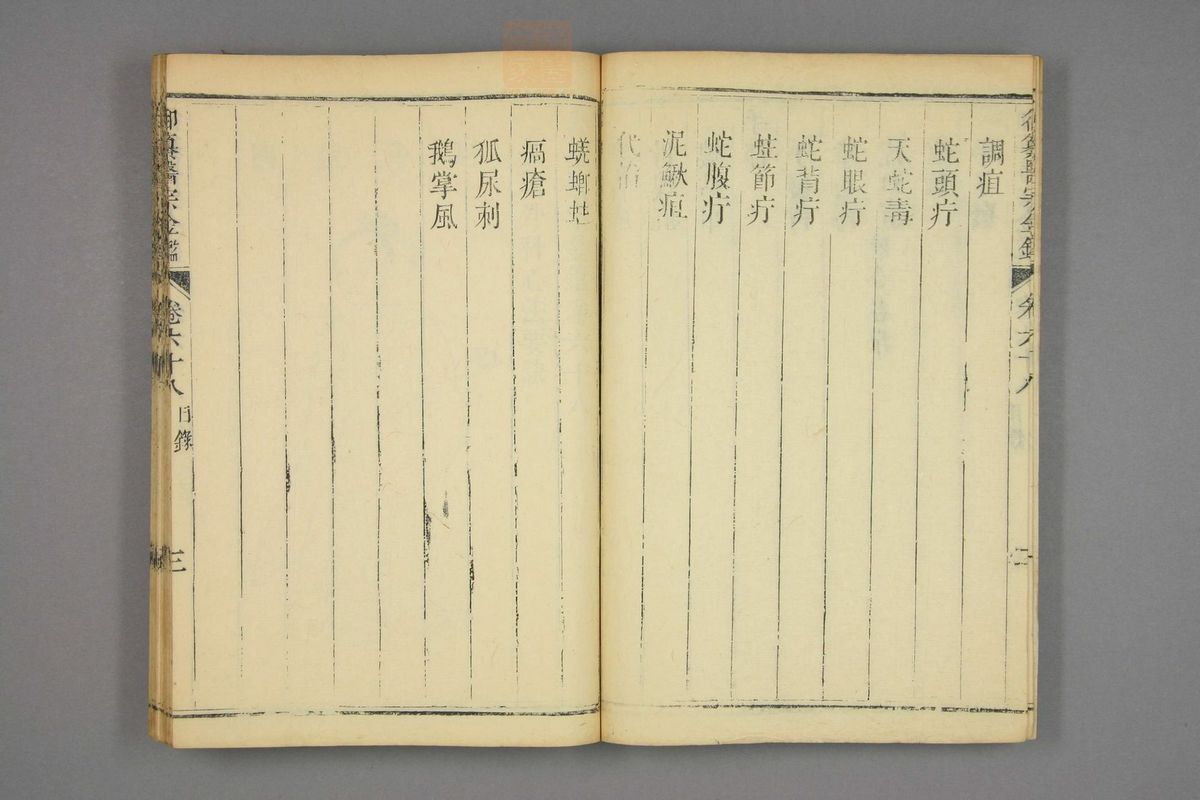 御纂醫宗金鑑
卷六十八
調疽
蛇頭疔
天蛇毒
蛇眼疔
蛇背疔
蛀節疔
蛇腹疔
泥鰍疽
代指
蜣螂蛀
瘑瘡
狐尿刺
鵝掌風
御纂醫宗金鑑
卷六十八
目錄
三